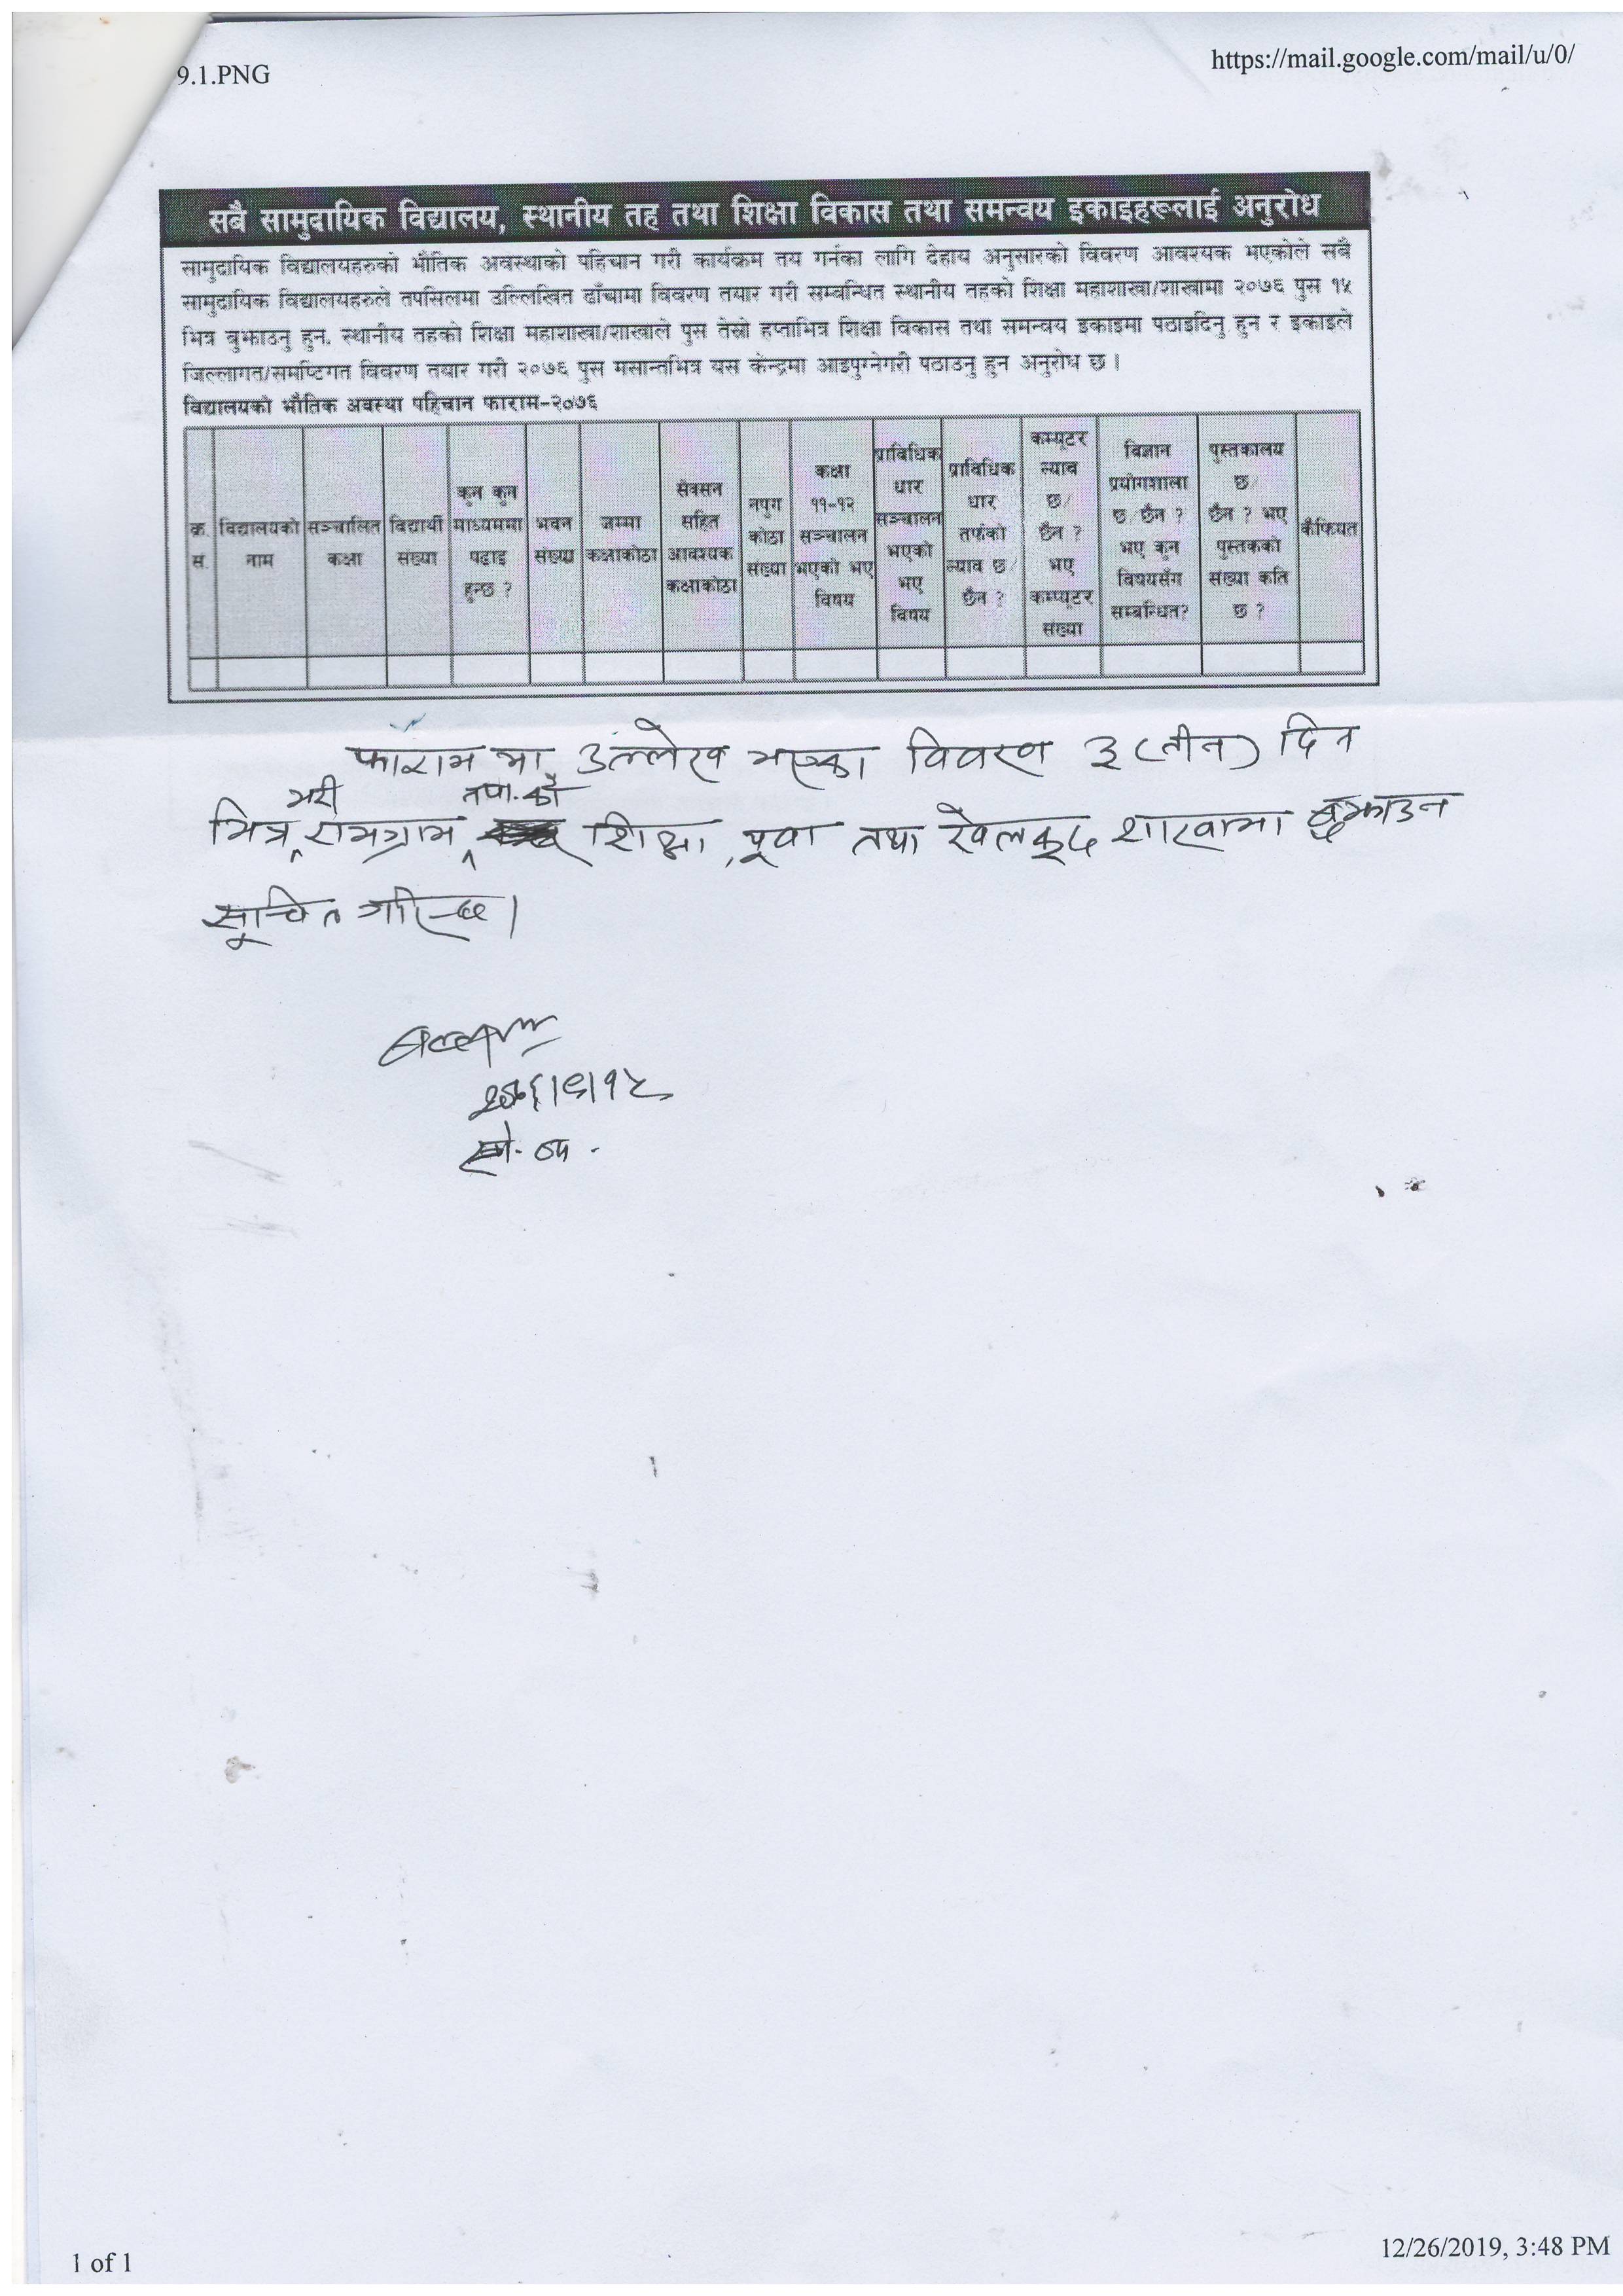 9.1.PNG
https://mail.google.com/mail/u/0/
सबै सामुदायिक विद्यालय, स्थानीय तह तथा शिक्षा विकास तथा समन्वय इकाइहरूलाई अनुरोध
सामुदायिक विद्यालयहरुको भौतिक अवस्थाको पहिचान गरी कार्यक्रम तय गर्नका लागि देहाय अनुसारको विवरण आवश्यक भएकोले सबै
सामुदायिक विद्यालयहरुले तपसिलमा उल्लिखित ढाँचामा विवरण तयार गरी सम्बन्धित स्थानीय तहको शिक्षा महाशाखा/शाखामा २०७६ पुस १५
भित्र बुझाउनु हुन. स्थानीय तहको शिक्षा महाशाखा/शाखाले पुस तेस्रो हप्ताभित्र शिक्षा विकास तथा समन्वय इकाइमा पठाइदिनु हुन र इकाइले
जिल्लागत/समष्टिगत विवरण तयार गरी २०७६ पुस मसान्तभित्र यस केन्द्रमा आइपुग्नेगरी पठाउनु हुन अनुरोध छ ।
विद्यालयको भौतिक अवस्था पहिचान फाराम-२०७६
क्र. स.
विद्यालयको नाम
सञ्चालित कक्षा
विद्यार्थी संख्या
कुन कुन माध्यममा पढाइ हुन्छ ?
भवन संख्या
जम्मा कक्षाकोठा
सेक्सन सहित आवश्यक कक्षाकोठा
नपुग कोठा संख्या
कक्षा ११-१२ सञ्चालन भएको भए विषय
प्राविधिक धार सञ्चालन भएको भए विषय
प्राविधिक धार तर्फको ल्याव छ/ छैन ?
कम्प्यूटर ल्याव छ/ छैन ? भए कम्प्यूटर संख्या
विज्ञान प्रयोगशाला छ/छैन ? भए कुन विषयसँग सम्बन्धित?
पुस्तकालय छ/ छैन ? भए पुस्तकको संख्या कति छ ?
कैफियत
फाराम मा उल्लेख भएका विवरण ३ (तीन) दिन
भरी न.पा.को
भित्र रामग्राम शिक्षा, युवा तथा खेलकूद शाखामा बुझाउन
सूचित गरिन्छ।
२०७६।९।१५
1 of 1
12/26/2019, 3:48 PM